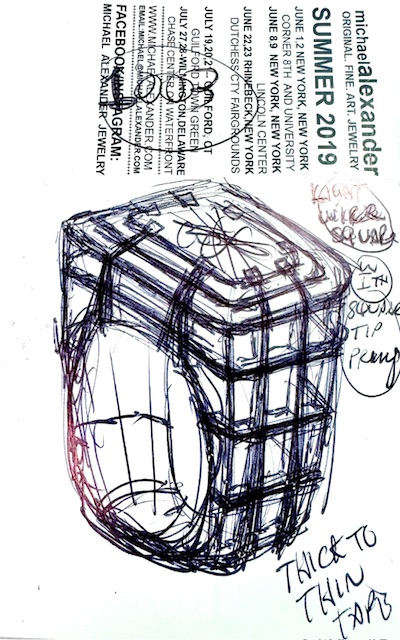 michaelalexander
ORIGINAL. FINE. ART. JEWELRY
SUMMER 2019
JUNE 1,2 NEW YORK, NEW YORK
CORNER 8TH AND UNIVERSITY
JUNE 8,9 NEW YORK, NEW YORK
LINCOLN CENTER
JUNE 22,23 RHINEBECK, NEW YORK
DUTCHESS CTY FAIRGROUNDS
JULY 19,20,21 GUILFORD, CT
GUILFORD TOWN GREEN
JULY 27,28-WILMINGTON,DELAWARE
CHASE CENTER WATERFRONT
WWW.MICHAELALEXANDER.COM
EMAIL:MICHAEL@MICHAELALEXANDER.COM
FACEBOOK/INSTAGRAM:
MICHAEL ALEXANDER JEWELRY
SQUARE
TIP
PRONG
THICK TO
THIN